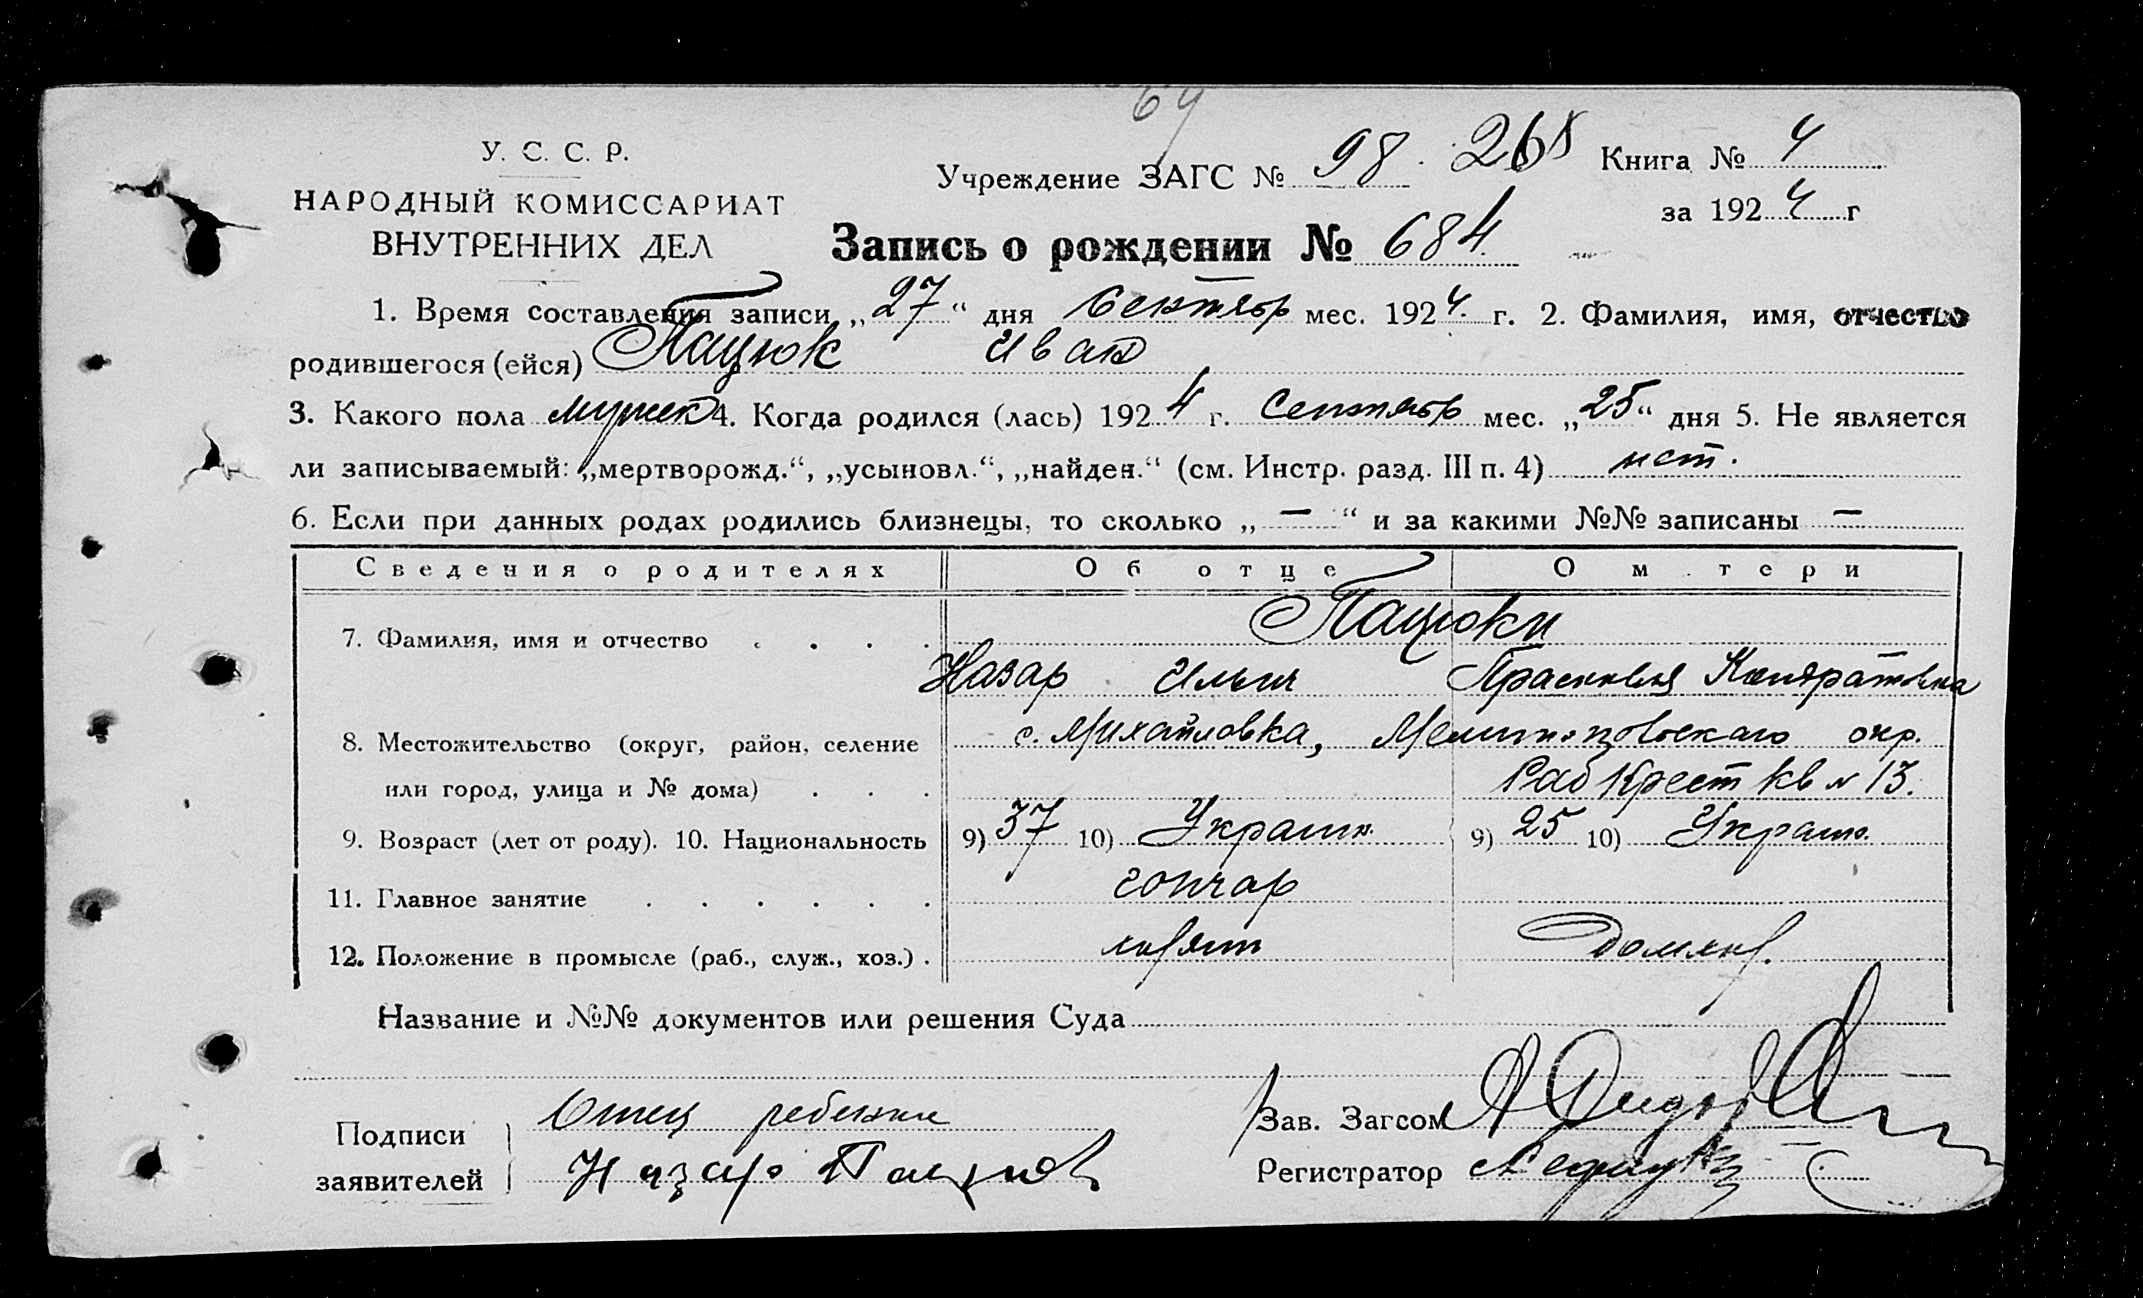 64
У. С. С. Р.
НАРОДНЫЙ КОМИССАРИАТ
ВНУТРЕННИХ ДЕЛ
Учреждение ЗАГС № 98. 268 Книга № 4
за 1924 г
Запись о рождении № 684.
1. Время составления записи „27“ дня Сентябр мес. 1924. г. 2. Фамилия, имя, отчество
родившегося (ейся) Пацюк Иван
3. Какого пола мужск 4. Когда родился (лась) 1924 г. Сентябр мес. „25“ дня 5. Не является
ли записываемый: „мертворожд.“, „усыновл.“, „найден.“ (см. Инстр. разд. III п. 4) нет.
6. Если при данных родах родились близнецы, то сколько „ — “ и за какими №№ записаны —
Сведения о родителях Об отце О м тери
7. Фамилия, имя и отчество . . . . Пацюки
Назар Ильич Прасковья Кондратовна
8. Местожительство (округ, район, селение с. Михайловка, Мелитопольскаго окр.
или город, улица и № дома) . . . Раб Крест кв № 13.
9. Возраст (лет от роду). 10. Национальность 9) 37 10) Украин. 9) 25 10) Украин.
11. Главное занятие . . . . . . гончар
12. Положение в промысле (раб., служ., хоз.) . хозяин домхоз.
Название и №№ документов или решения Суда
Подписи
заявителей
Отец ребенка
Назар Пацюк
Зав. Загсом
Регистратор